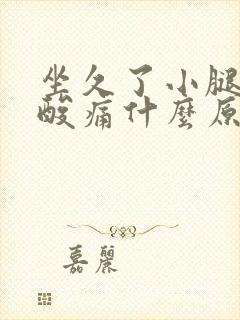 坐久了小腿
酸痛什麼原
嘉麗